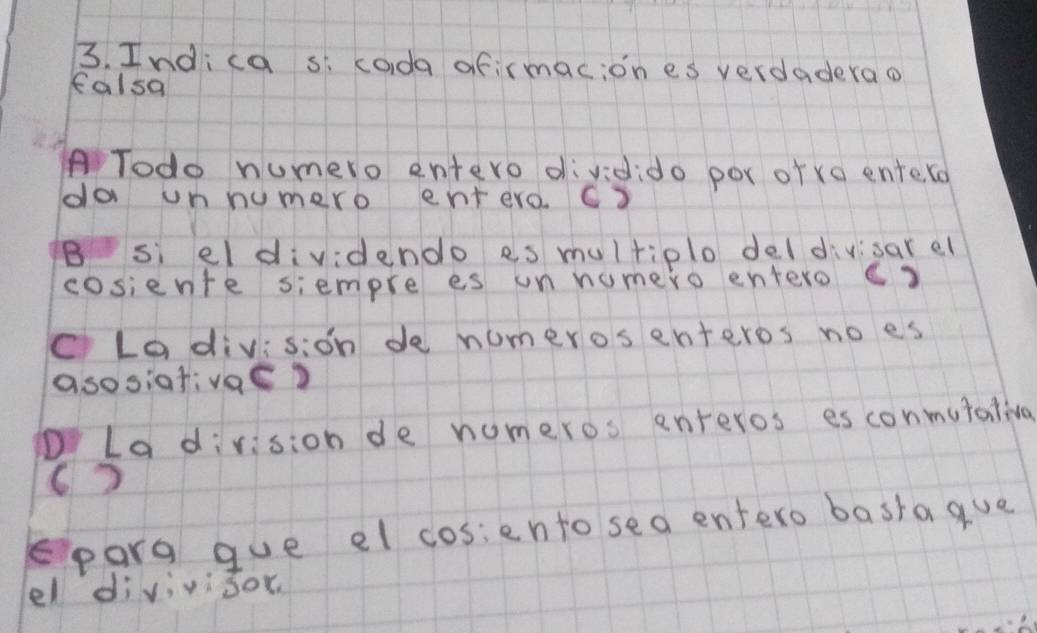 3. Indica si cada afirmación es verdadera o
falsa
A Todo numero entero dividido por otro entero
da un numero entero. ( )
B si el dividendo es multiplo del divisar el
cosiente siempre es un numero entero ( )
C La división de numeros enteros no es
asosiativa ( )
D La division de numeros enteros es conmutativa
( )
E para que el cosiento sea entero basta que
el divivisor.